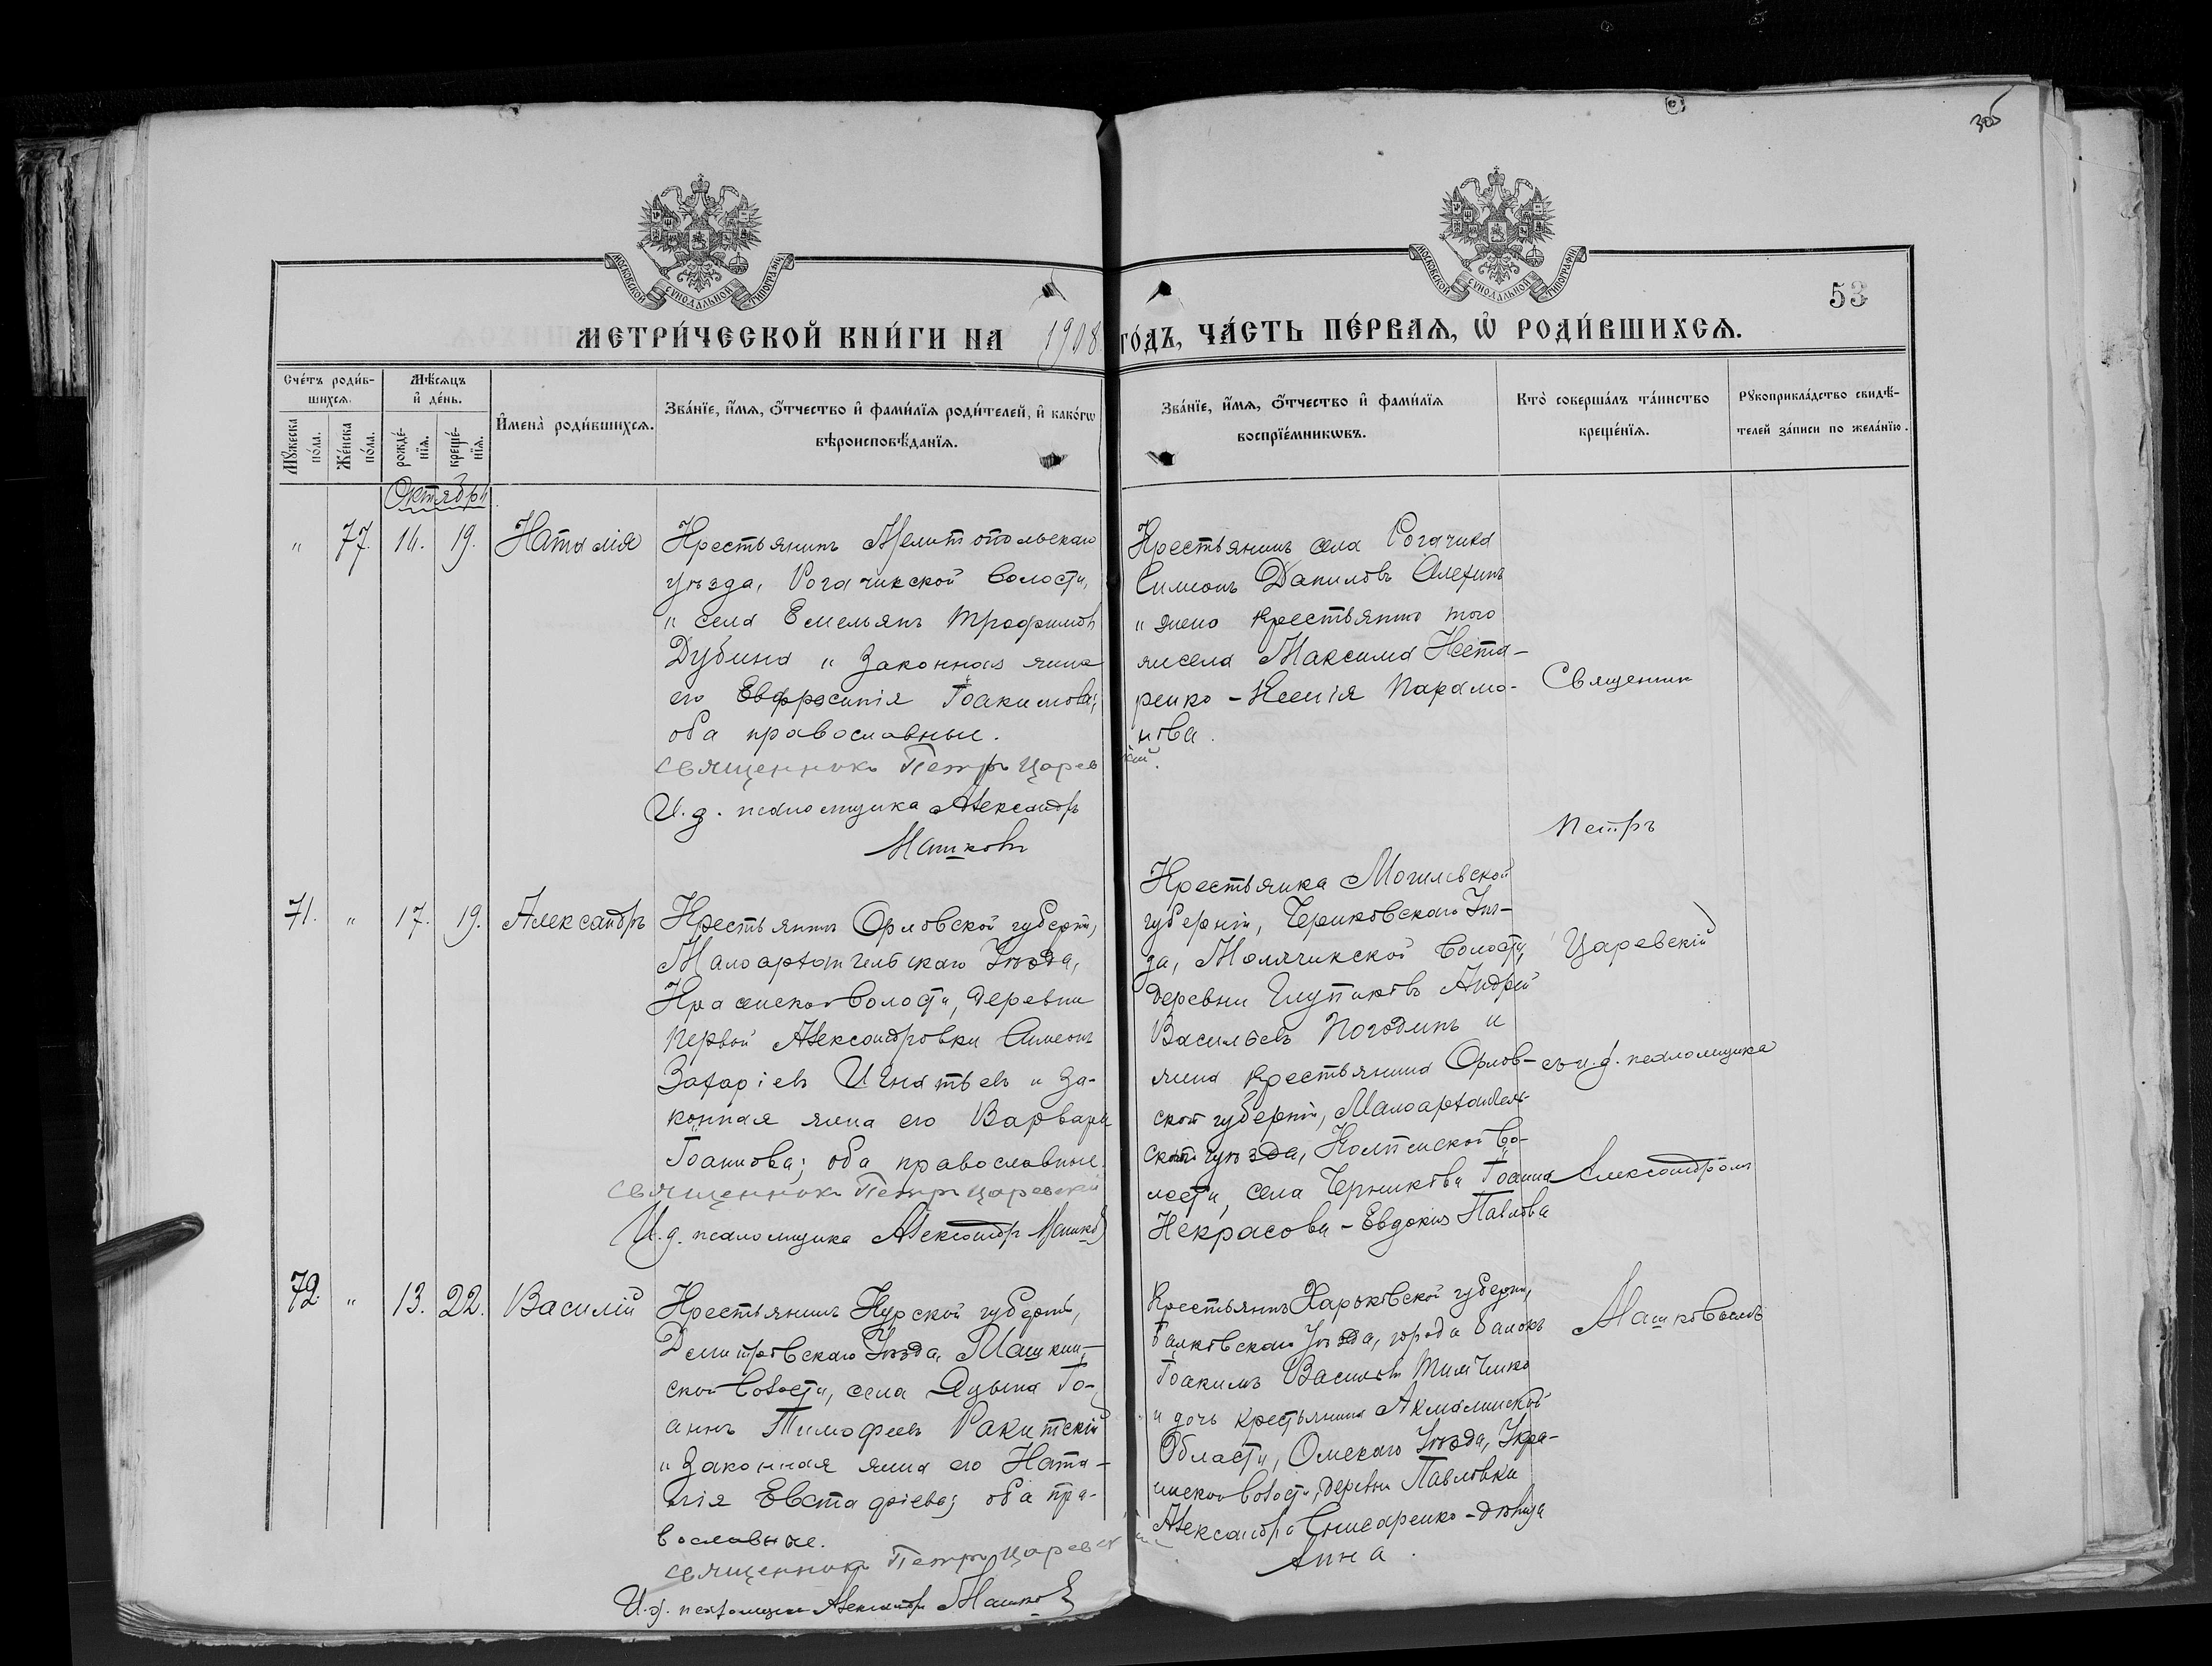 305
МОСКОВСКОЙ СѴНОДАЛЬНОЙ ТИПОГРАФІИ
МОСКОВСКОЙ СѴНОДАЛЬНОЙ ТИПОГРАФІИ
53
МЕТРИ́ЧЕСКОЙ КНИ́ГИ НА 1908 ГО́ДЪ, ЧА́СТЬ ПЕ́РВАѦ, Ѡ҆ РОДИ́ВШИХСѦ.
Сче́тъ роди́вшихсѧ.
Мꙋ́жеска по́ла.
Же́нска по́ла.
Мѣ́сѧцъ и҆ де́нь.
рожде́нїѧ.
креще́нїѧ.
И҆мена̀ роди́вшихсѧ.
Зва́нїе, и҆́мѧ, ѻ҆́тчество и҆ фами́лїѧ роди́телей, и҆ како́гѡ
вѣроисповѣ́данїѧ.
Зва́нїе, и҆́мѧ, ѻ҆́тчество и҆ фами́лїѧ
воспрїе́мникѡвъ.
Кто̀ соверша́лъ та́инство
креще́нїѧ.
Рꙋкоприкла́дство свидѣ́-
телей за́писи по жела́нїю.
Октябрь
" 77. 14. 19. Наталія
Крестьянинъ Мелитопольскаго
уѣзда, Рогачикской волости,
" села Емельянъ Трофимовъ
Дубина и законная жена
его Евфросинія Іоакимова;
оба православные.
Священникъ Петръ Царевскій.
И. д. псаломщика Александръ
Машковъ
Крестьянинъ села Рогачика
Симеонъ Даниловъ Алехинъ
и жена крестьянина того
же села Максима Нета-
ренко - Ксенія Парамо-
нова.
71. " 17. 19. Александръ
Крестьянинъ Орловской губерніи,
Малоархангельскаго Уѣзда,
волости, деревни
Первой Александровки Симеонъ
Захаріевъ Игнатьевъ и за-
конная жена его Варвара
Іоаннова; оба православные.
Священникъ Петръ Царевскій
И. д. псаломщика Александръ Машковъ
Крестьянинъ Могилевской
губерніи, Чериковскаго Уѣз-
да, Молячикской волости,
деревни Андрей
Васильевъ Погодинъ и
жена крестьянина Орлов-
ской губерніи, Малоархангель-
скаго уѣзда, волости,
села Іоанна
Некрасова - Евдокія Павлова
72. " 13. 22. Василій
Крестьянинъ Курской губерніи,
Дмитровскаго Уѣзда, Машкин-
ской волости, села Іо-
аннъ Тимофеевъ Ракитскій
и законная жена его Ната-
лія Евстафіева; оба пра-
вославные.
Священникъ Петръ Царевскій
И. д. псаломщика Александръ Машковъ
Крестьянинъ Харьковской губерніи,
Валковскаго Уѣзда, города Валокъ
Іоакимъ Васильевъ
и дочь крестьянина Акмолинской
Области, Омскаго Уѣзда, Укра-
инской волости, деревни Павловки
Александра Снисаренко - дѣвица
Анна.
Священник
Петръ
Царевскій
съ и. д. псаломщика
Александромъ
Машковымъ